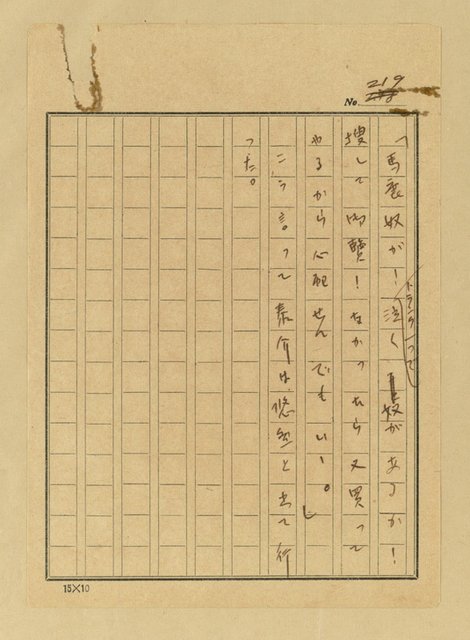 No. 219
「馬鹿奴が！泣く奴があるか！
トランクって
捜して御覧！なかったら又買って
やるから心配せんでもいゝ。」
こう言って泰介は悠然と出て行
った。
15×10